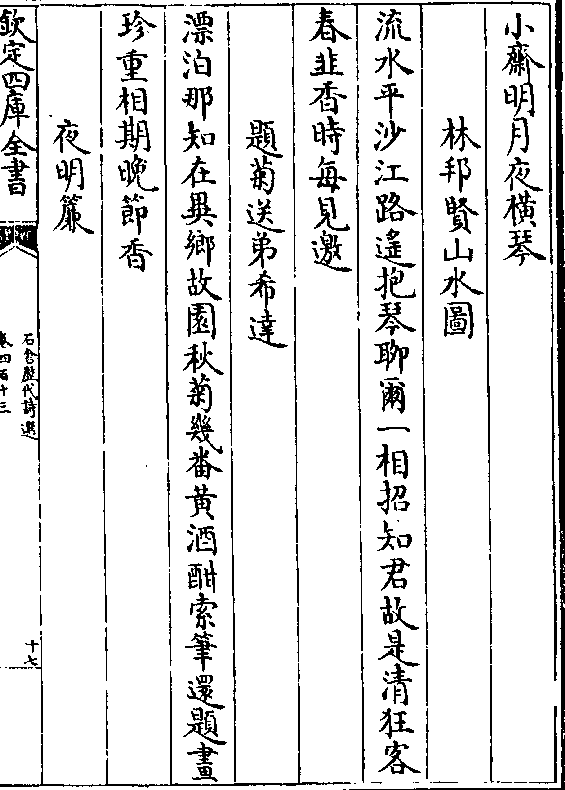 小齋明月夜橫琴
林邦賢山水圖
流水平沙江路遙抱琴聊爾一相招知君故是清狂客
春韭香時每見邀
題菊送弟希達
漂泊那知在異鄉故園秋菊幾番黃酒酣索筆還題畫
珍重相期晚節香
夜明簾
欽定四庫全書
石倉歷代詩選
卷四百十三
十七